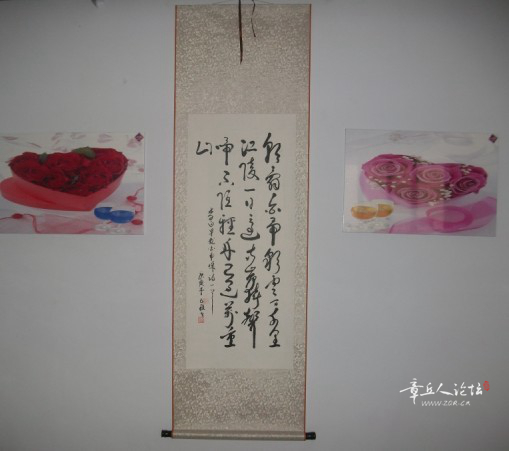 朝辞白帝彩云间千里
江陵一日还两岸猿声
啼不住轻舟已过万重
山
章丘人论坛